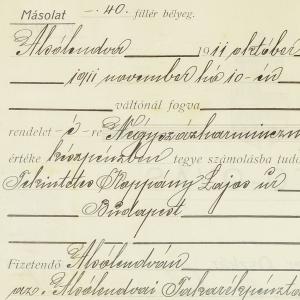 Másolat —.40. fillér bélyeg.
Alsólendva 1911 október
1911 november hó 10-én
váltónál fogva
rendelet - é - re Négyszázharmincn
értéke készpénzben tegye számolásba tudó
Tekintetes Koppány Lajos úr
Budapest
Fizetendő Alsólendván
az Alsólendvai Takarékpénzta